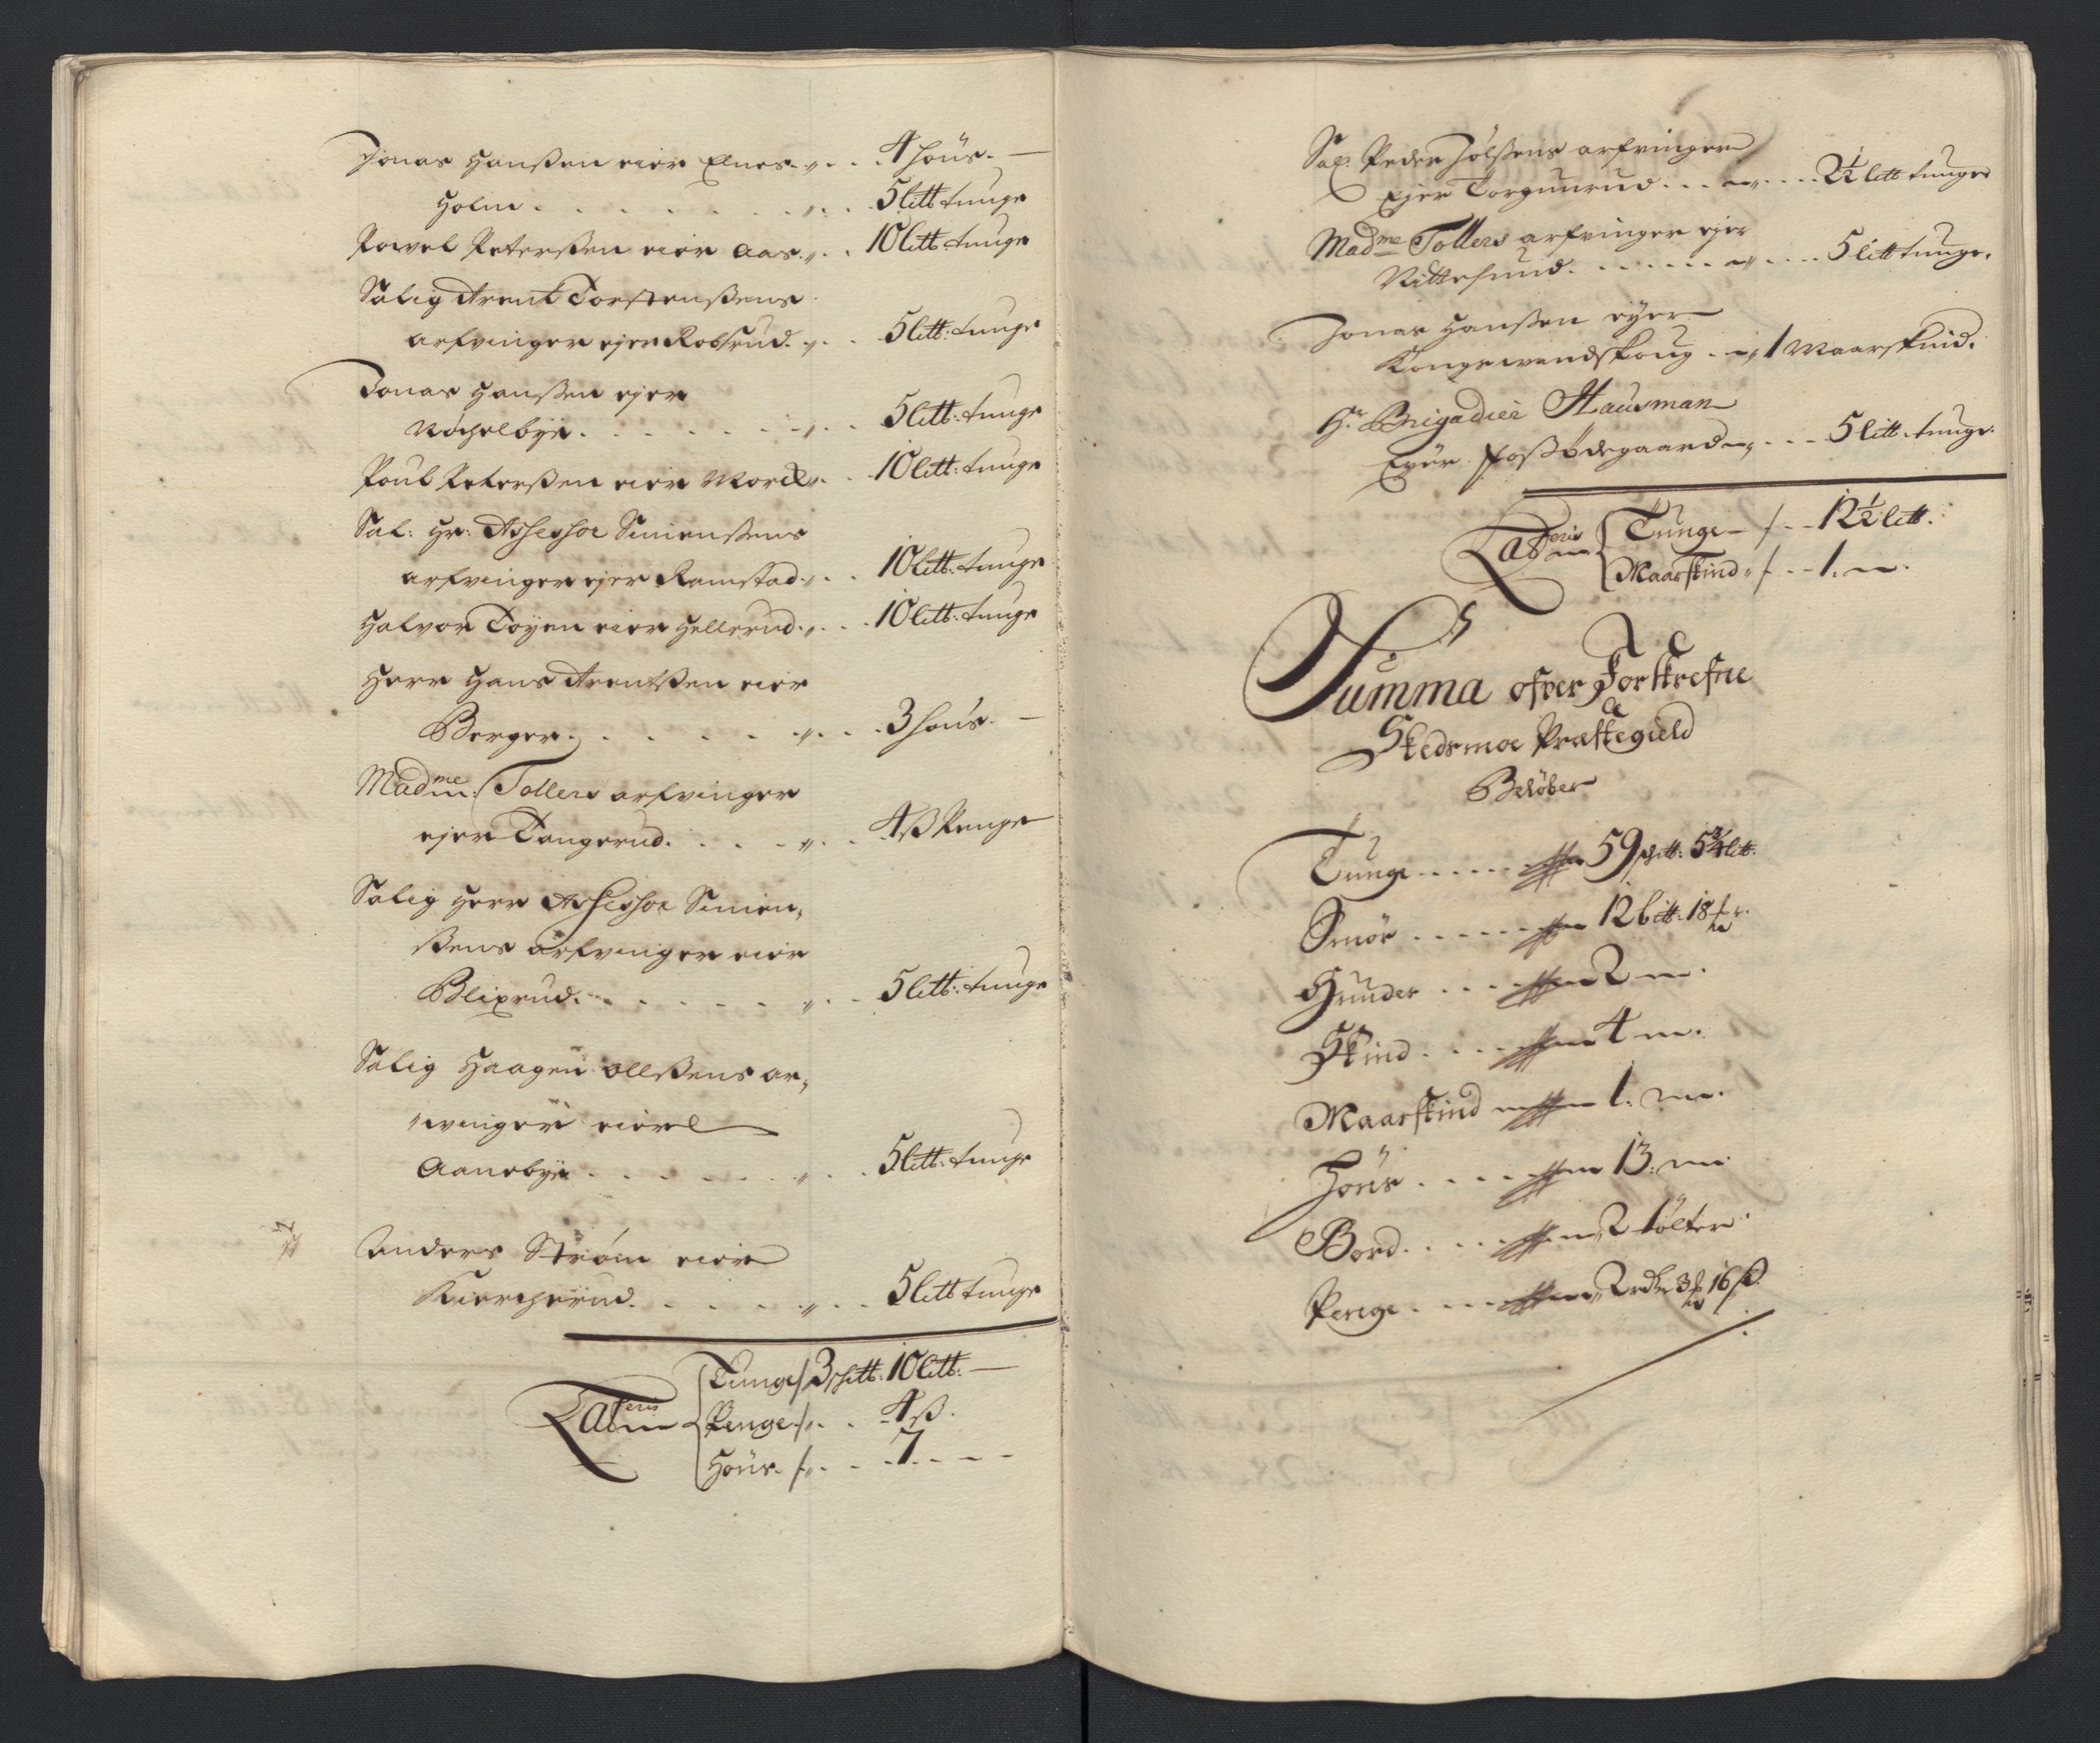 Jonas Hanßen eier Elnes . „ . . 4 hous. —
Holm . . . . . . . „ . . 5 litt tunge
Powel Peterßen eier Aas . „ . . 10 litt. tunge
Salig Arent Torstenßens
arfvinger ejer Robsrud . „ . . 5 litt: tunge
Jonas Hanßen ejer
Nöchelbye . . . . . . . „ . . 5 litt: tunge
Poul Peterßen eier Morch „ . . 10 litt: tunge
Sal: Hr: Assessor Simenßens
arfvinger ejer Ramstad . „ . . 10 litt: tunge
Halvor Töyen eier Hellerud . „ . . 10 litt: tunge
Herr Hans Arentßen eier
Berger . . . . . . . „ . . 3 hous. —
Madme Tollers arfvinger
ejer Tangerud . . . . „ . . 4 ß Penge
Salig Herr Assessor Simen,
ßens arfvinger eier
Blixrud . . . . . . . „ . . 5 litt: tunge
Salig Haagen Ollßens ar,
„winger eier
Aanebye . . . . . . . „ . . 5 litt: tunge
Anders Ström eier
Kiercherud . . . . . „ . . 5 litt tunge
Lateris Tunge / 3 schtt: 10 litt: —
Penge / „ . . 4 ß.
Hous. / „ . . . 7 . . . .
Sal. Peder Jolßens arfvinger
Ejer Torgunrud . . . „ . . . . 2½ litt tunge
Madme Tollers arfvinger ejer
Nittesund . . . . . . „ . . . . 5 litt tunge.
Jonas Hanßen eyer
Kongewandskoug . „ 1 Maarskind.
Hr. Brigadier Hausman
Eyer Foßödegaard „ . . . 5 litt. tunge.
Lateris Tunge — / . . 12½ litt.
Maarskind „ / . . 1. —.
Summa ofver Forskrefne
Skedsmoe Præstegield
Belöber
Tunge . . . . . 59 schtt: 5¾ litt.
Smör . . . . . . 12 bitt. 18 mr.
Huuder . . . . 2 —.
Skind . . . . 4 —.
Maarskind 1. —.
Høns . . . . 13. —
Bord . . . . . 2 tölter.
Penge . . . . . 2 rdr 3 16 ß